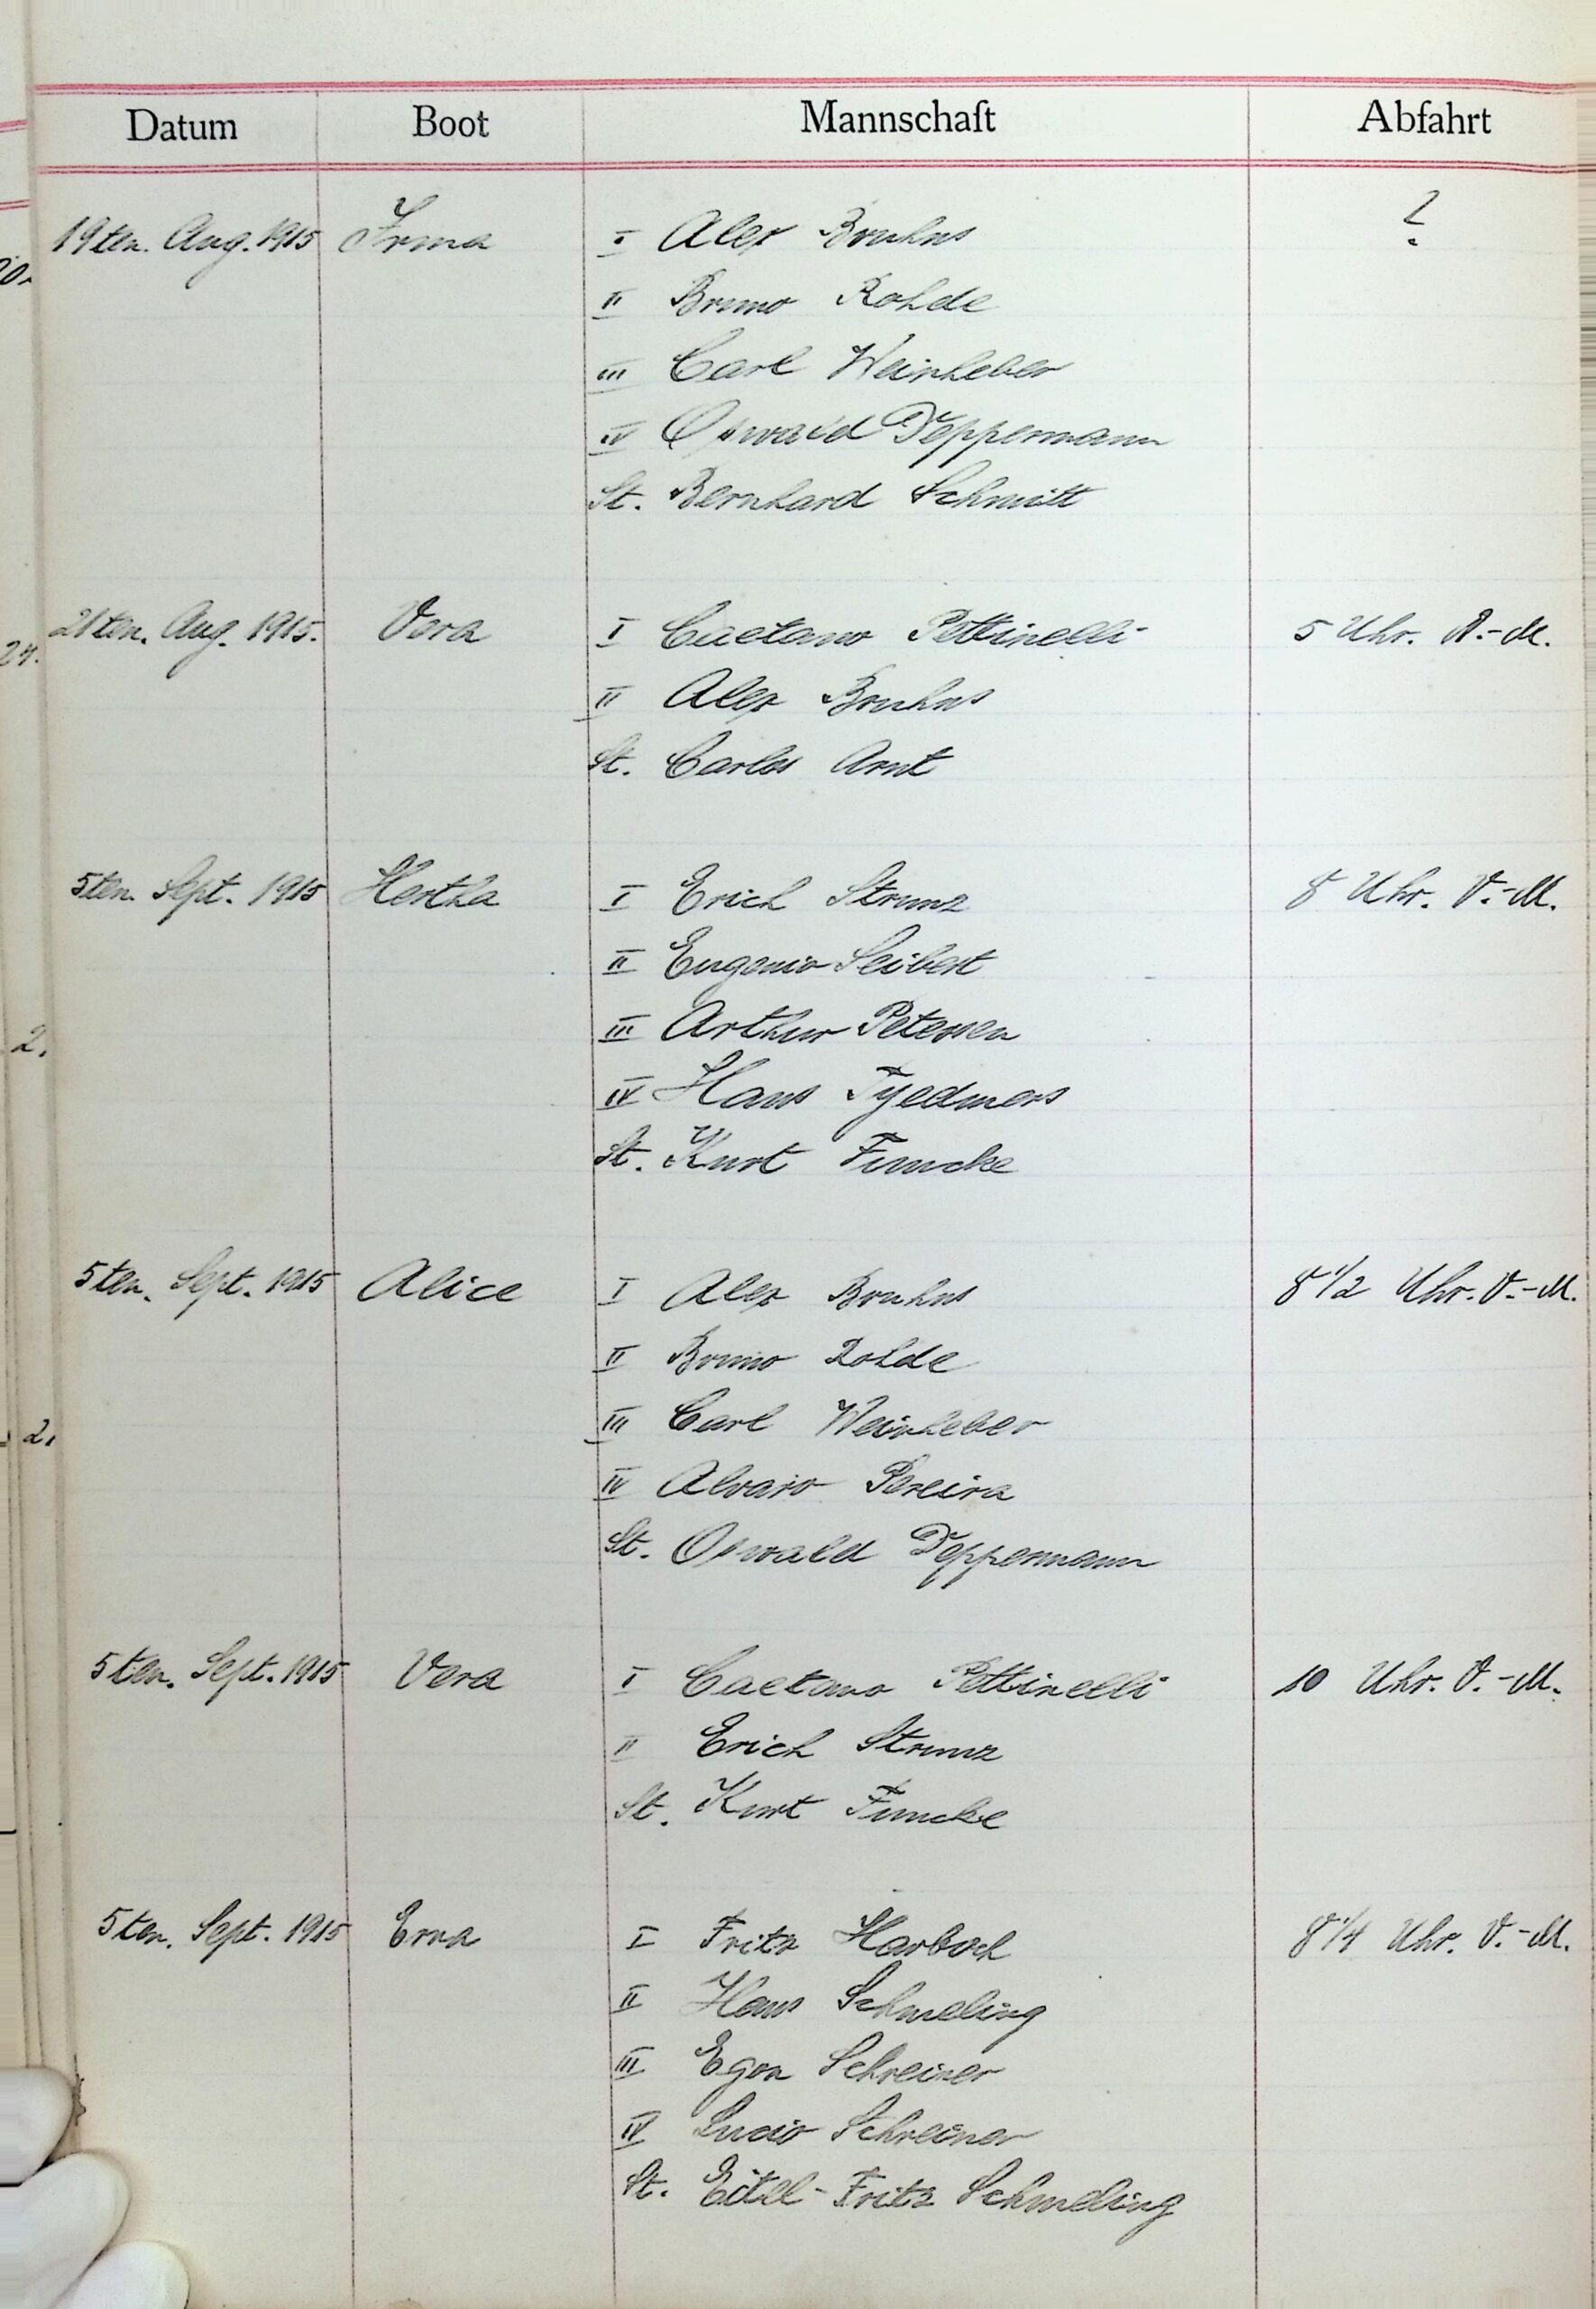 Datum Boot Mannschaft Abfahrt
19ten. Aug. 1915 Irma I Alex Bruhns ?
II Bruno Rohde
III Carl Weinheber
IV Oswald Deppermann
St. Bernhard Schmitt
21ten. Aug. 1915. Vera I Caetano Pettinelli 5 Uhr. N.-M.
II Alex Bruhns
St. Carlos Arnt
5ten. Sept. 1915 Hertha I Erich Strunz 8 Uhr. V.-M.
II Eugenio Seibert
III Arthur Petersen
IV Hans Tyedmers
St. Kurt Funcke
5ten. Sept. 1915 Alice I Alex Bruhns 8 1/2 Uhr. V.-M.
II Bruno Rohde
III Carl Weinheber
IV Alvaro Pereira
St. Oswald Deppermann
5ten. Sept. 1915 Vera I Caetano Pettinelli 10 Uhr. V.-M.
II Erich Strunz
St. Kurt Funcke
5ten. Sept. 1915 Erna I Fritz 8 1/4 Uhr. V.-M.
II Hans Schmeling
III Egon Schreiner
IV Lucio Schreiner
St. Eitel-Fritz Schmeling